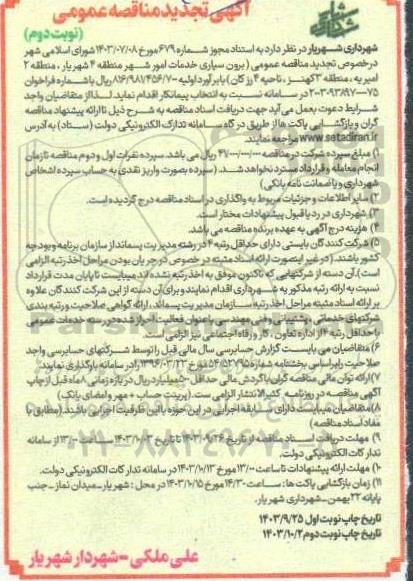 آگهی تجدید مناقصه عمومی
(نوبت دوم)
شهرداری شهریار در نظر دارد به استناد مجوز شماره ۶۷۹ مورخ ۱۴۰۳/۰۷/۰۸ شورای اسلامی شهر
درخصوص تجدید مناقصه عمومی (برون سپاری خدمات امور شهر منطقه ۴ شهریار ، منطقه ۲
امیریه ، منطقه ۳ کهنز ، ناحیه ۴ رزکان) با برآورد اولیه
ریال با شماره فراخوان
در سامانه نسبت به انتخاب پیمانکار اقدام نماید. لذا از متقاضیان واجد
شرایط دعوت بعمل می آید جهت دریافت اسناد مناقصه به شرح ذیل تا ارائه پیشنهاد مناقصه
گران و بازگشایی پاکت ها از طریق درگاه سامانه تدارک الکترونیکی دولت (ستاد) به آدرس
www.setadiran.ir مراجعه نمایند.
۱) مبلغ سپرده شرکت در مناقصه ۴۷/۰۰۰/۰۰۰/۰۰۰ ریال می باشد. سپرده نفرات اول و دوم مناقصه تا زمان
انجام معامله و قرارداد مسترد نخواهد شد. (سپرده بصورت واریز نقدی به حساب سپرده اشخاص
شهرداری و یا ضمانت نامه بانکی)
۲) سایر اطلاعات و جزئیات مربوط به واگذاری در اسناد مناقصه درج گردیده است.
۳) شهرداری در رد یا قبول پیشنهادات مختار است.
۴) هزینه درج آگهی به عهده برنده مناقصه می باشد.
۵) شرکت کنندگان بایستی دارای حداقل رتبه ۴ در رشته مدیریت پسماند از سازمان برنامه و بودجه
کشور باشند. (در غیر اینصورت ارائه اسناد مثبته در خصوص در جریان بودن مراحل اخذ رتبه الزامی
است). آن دسته از شرکتهایی که تاکنون موفق به اخذ رتبه نشده اند میبایست تا پایان مدت قرارداد
نسبت به ارائه رتبه مذکور به شهرداری اقدام نمایند و برای آن دسته از این شرکت کنندگان علاوه
بر ارائه اسناد مثبته مراحل اخذ رتبه سازمان مدیریت پسماند، ارائه گواهی صلاحیت و رتبه بندی
شرکتهای خدماتی، پشتیبانی و فنی مهندسی با عنوان فعالیت احراز شده در رسته خدمات عمومی
با حداقل رتبه ۴ از اداره تعاون ، کار و رفاه اجتماعی نیز الزامی است.
۶) متقاضیان می بایست گزارش حسابرسی سال مالی قبل را توسط شرکتهای حسابرسی واجد
صلاحیت را براساس بخشنامه شماره ۵۴/۵۲۷۹۵ مورخ ۱۳۹۶/۰۳/۲۳ را در سامانه بارگذاری نمایند.
۷) ارائه توان مالی مناقصه گران با گردش مالی حداقل ۵۰۰ میلیارد ریال در بازه زمانی ۸ ماه قبل از چاپ
آگهی مناقصه در روزنامه کثیرالانتشار الزامی ست. (پرینت حساب + مهر و امضای بانک)
۸) متقاضیان میبایست دارای سابقه اجرایی در این حوزه با این ظرفیت اجرایی باشند. (مطابق با
مفاد اسناد مناقصه)
۹) مهلت دریافت اسناد مناقصه از تاریخ ۱۴۰۳/۰۹/۲۶ تا تاریخ ۱۴۰۳/۱۰/۰۳ ساعت ۱۳/۰۰ از سامانه
تدارکات الکترونیکی دولت.
۱۰) مهلت ارائه پیشنهادات تا ساعت ۱۳/۰۰ مورخ ۱۴۰۳/۱۰/۱۳ در سامانه تدارکات الکترونیکی دولت.
۱۱) زمان بازگشایی پاکت ها : ساعت ۱۴/۳۰ مورخ ۱۴۰۳/۱۰/۱۵ در محل : شهریار_میدان نماز_جنب
پایانه ۲۲ بهمن_شهرداری شهریار.
تاریخ چاپ نوبت اول ۱۴۰۳/۹/۲۵
تاریخ چاپ نوبت دوم ۱۴۰۳/۱۰/۲
علی ملکی - شهردار شهریار